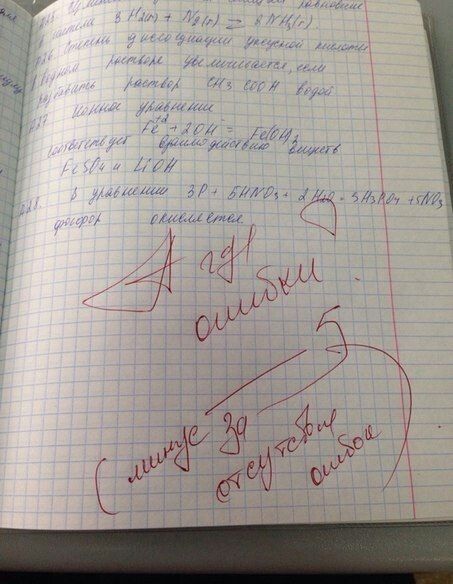 равновесие
3H2(г) + N2(г) = 2NH3(г).
Степень диссоциации уксусной кислоты
в водном растворе увеличивается, если
разбавить раствор CH3COOH водой
А27 Ионное уравнение
Fe+2 + 2OH- = Fe(OH)2
соответствует взаимодействию веществ
FeSO4 и LiOH
А28. В уравнении 3P + 5HNO3 + 2H2O = 3H3PO4 + 5NO
фосфор окисляется
А где
ошибки ?
5
(минус за
отсутствие
ошибок